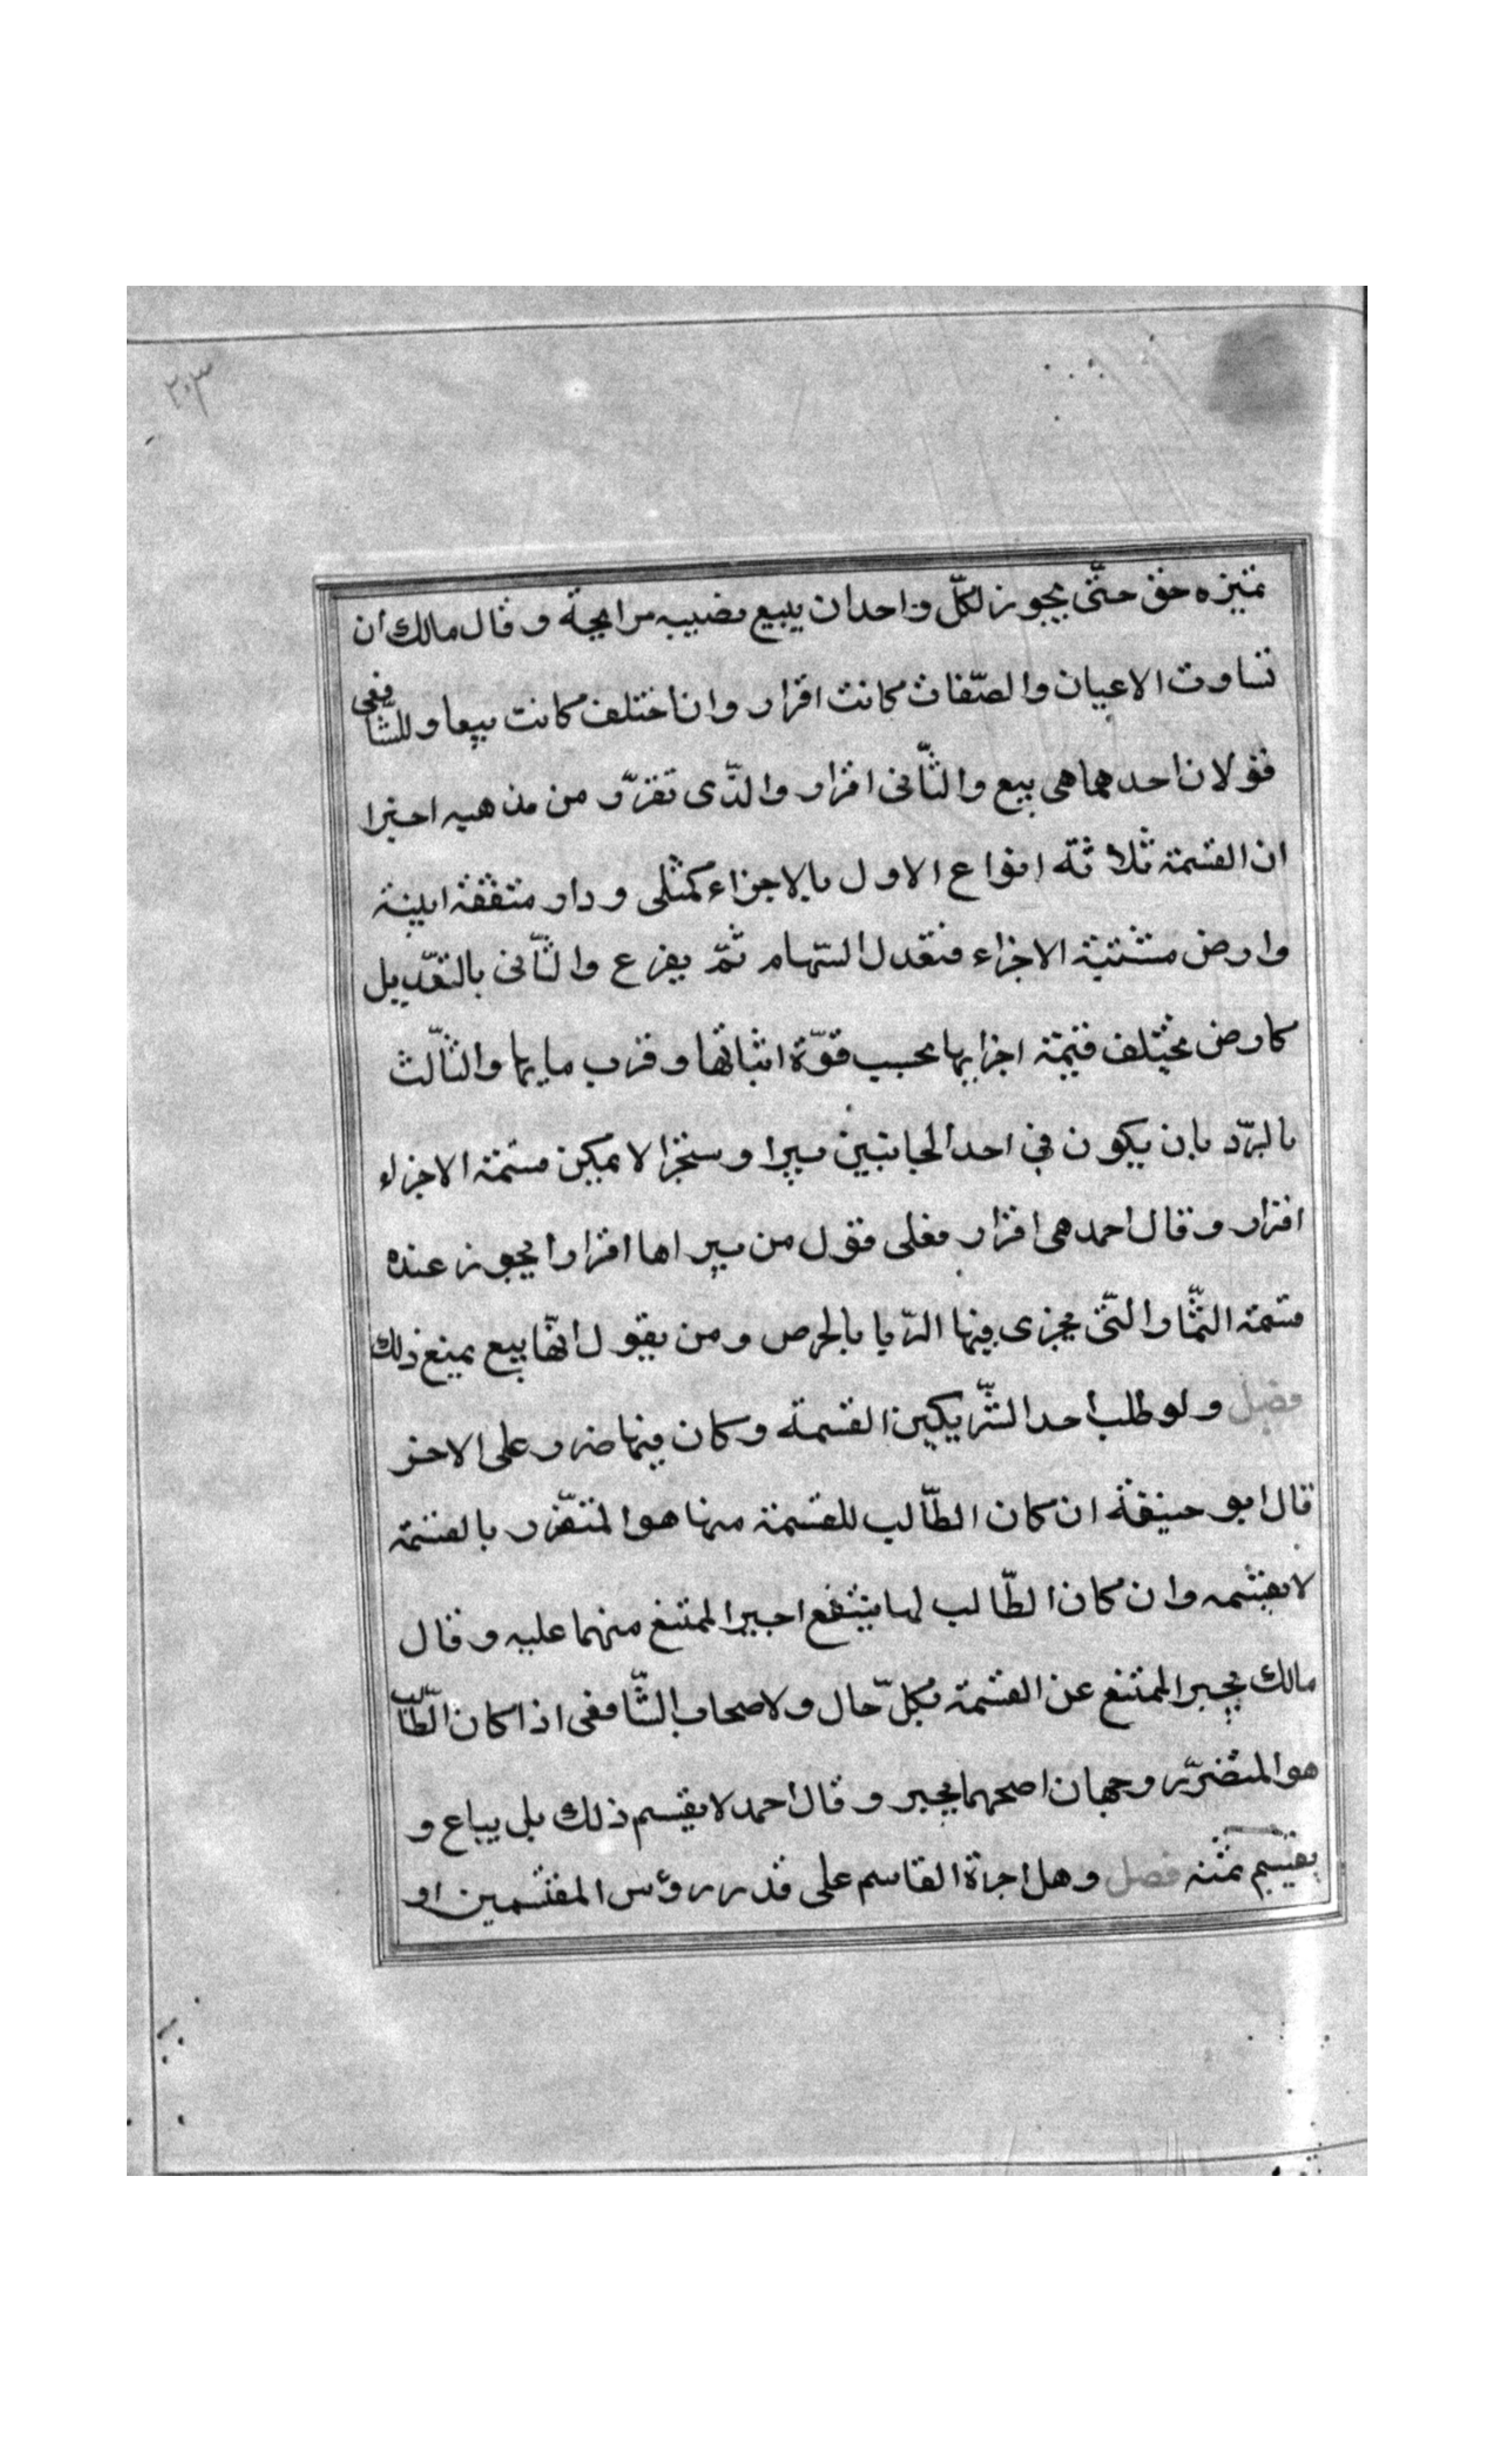 ٢٠٣
تميزه حق حتّى يجوز لكلّ واحد ان يبيع نصيبه مرابحة وقال مالك ان
تساوت الاعيان والصّفات كانت افراز وان اختلف كانت بيعا وللشّافعى
قولان احدهما هى بيع والثّانى افراز والذّى تقرّر من مذهبه اخيرا
ان القسمة ثلاثة انواع الاول بالاجزاء كمثلى ودار متفقة ابنية
وارض مشتبة الاجزاء فتعدل السّهام ثمّ يقرع والثّانى بالتعّديل
كارض يختلف قيمة اجزايها بحسب قوّة انباتها وقرب مايها والثّالث
بالرّد بان يكون فى احد الجانبين بيرا وسنجرا لا يمكن قسمة الاجزاء
افراز وقال احمد هى افراز فعلى قول من يراها افرازا يجوز عنده
قسمة الثّمار التّى يجزى فيها الرّبا بالخرص ومن يقول انّها بيع يمنع ذلك
فصل ولو طلب احد الشّريكين القسمة وكان فيها ضرر على الاخر
قال ابو حنيفة ان كان الطّالب للقسمة منها هو المتضّرر بالقسمة
لا يقسمه وان كان الطّالب لها ينتفع اجبر الممتنع منهما عليه وقال
مالك يجبر الممتنع عن القسمة بكلّ حال ولاصحاب الشّافعى اذا كان الطّالب
هو المتضرّر وجهان اصحهما يجبر وقال احمد لا يقسم ذلك بل يباع و
يقسم ثمنه فصل وهل اجرة القاسم على قدر رؤس المقتسمين او